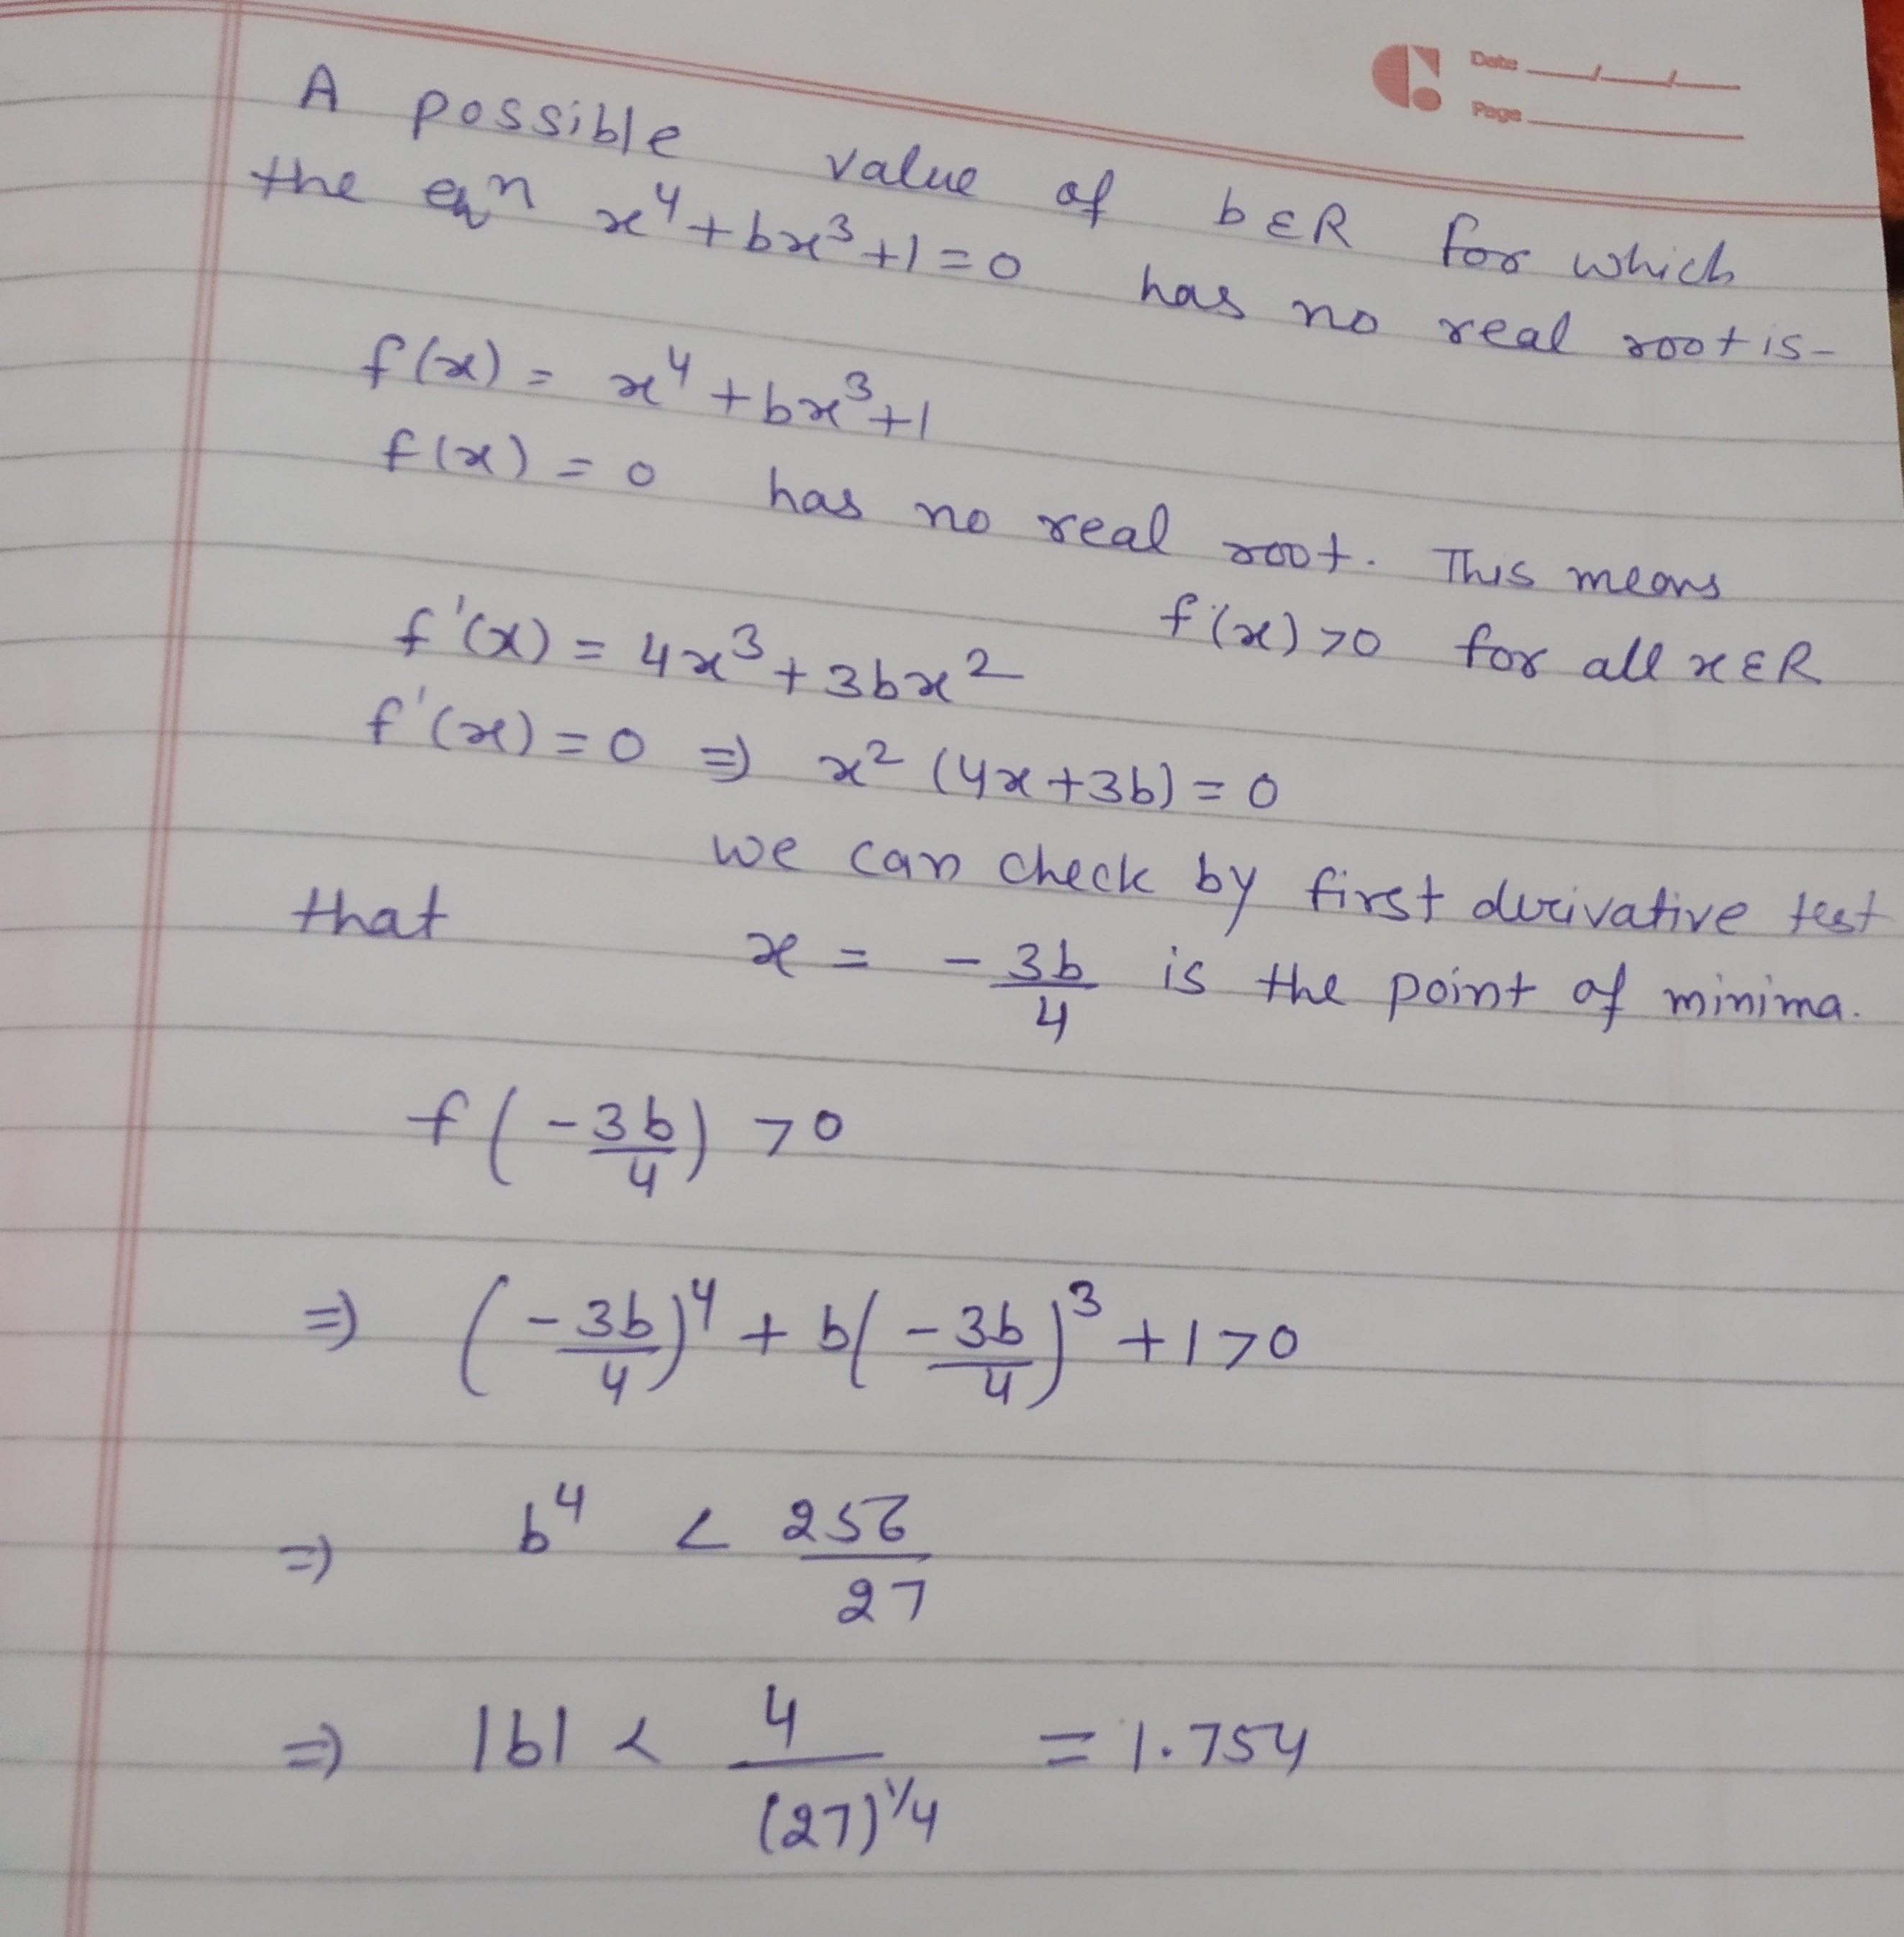 Date
Page
A possible value of b ε R for which
the eqn x⁴+bx³+1=0 has no real root is-
f(x) = x⁴+bx³+1
f(x) = 0 has no real root. This means
f(x) >0 for all x ε R
f'(x) = 4x³ + 3bx²
f'(x) = 0 ⇒ x² (4x+3b) = 0
we can check by first derivative test
that x = -3b/4 is the point of minima.
f(-3b/4) >0
⇒ (-3b/4)⁴ + b(-3b/4)³ +1 >0
⇒ b⁴ < 256/27
⇒ |b| < 4/(27)^1/4 = 1.754